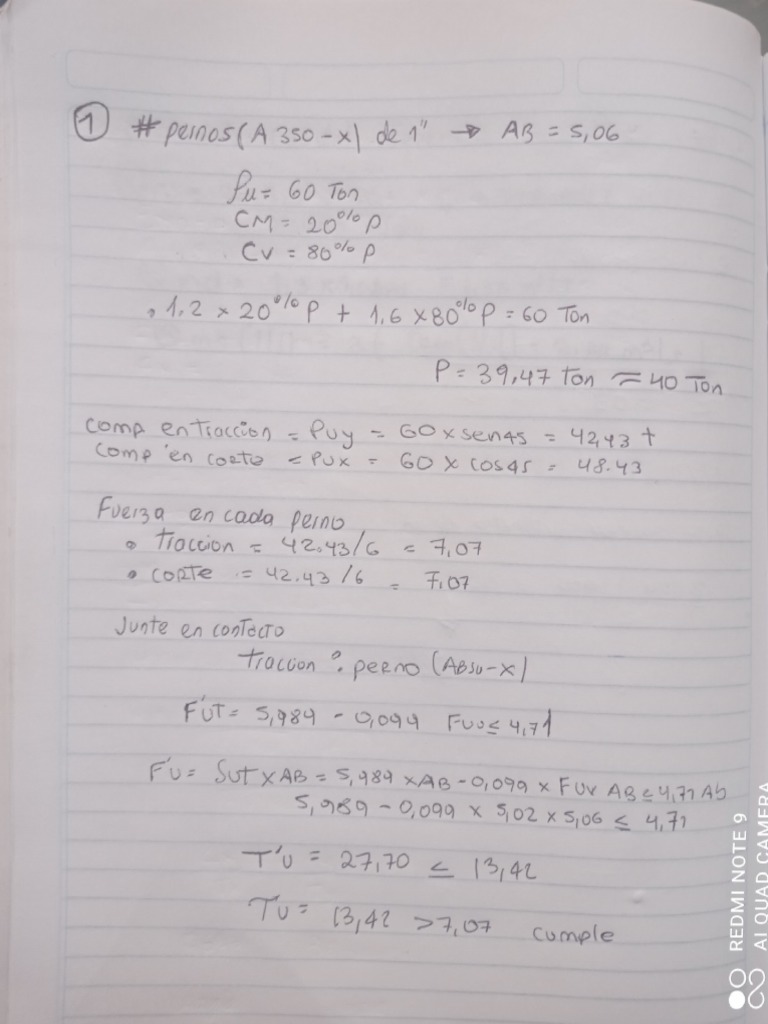 ① # pernos (A 350-x) de 1" → AB = 5,06
Pu = 60 Ton
CM = 20% P
CV = 80% P
• 1.2 x 20% P + 1,6 x 80% P = 60 Ton
P = 39,47 Ton ≈ 40 Ton
Comp en Traccion = Puy = 60 x sen45 = 42,43 t
Comp en corte = Pux = 60 x cos45 = 48.43
Fuerza en cada perno
• Traccion = 42.43/6 = 7,07
• corte = 42.43/6 = 7,07
Junte en contacto
Traccion : perno (A350-x)
F'UT = 5,984 - 0,094 Fuv ≤ 4,71
F'U = Sut x AB = 5,989 x AB - 0,099 x Fuv AB ≤ 4,71 Ab
5,989 - 0,099 x 5,02 x 5,06 ≤ 4,71
T'U = 27,70 ≤ 13,42
TU = 13,42 > 7,07 cumple
REDMI NOTE 9
AI QUAD CAMERA